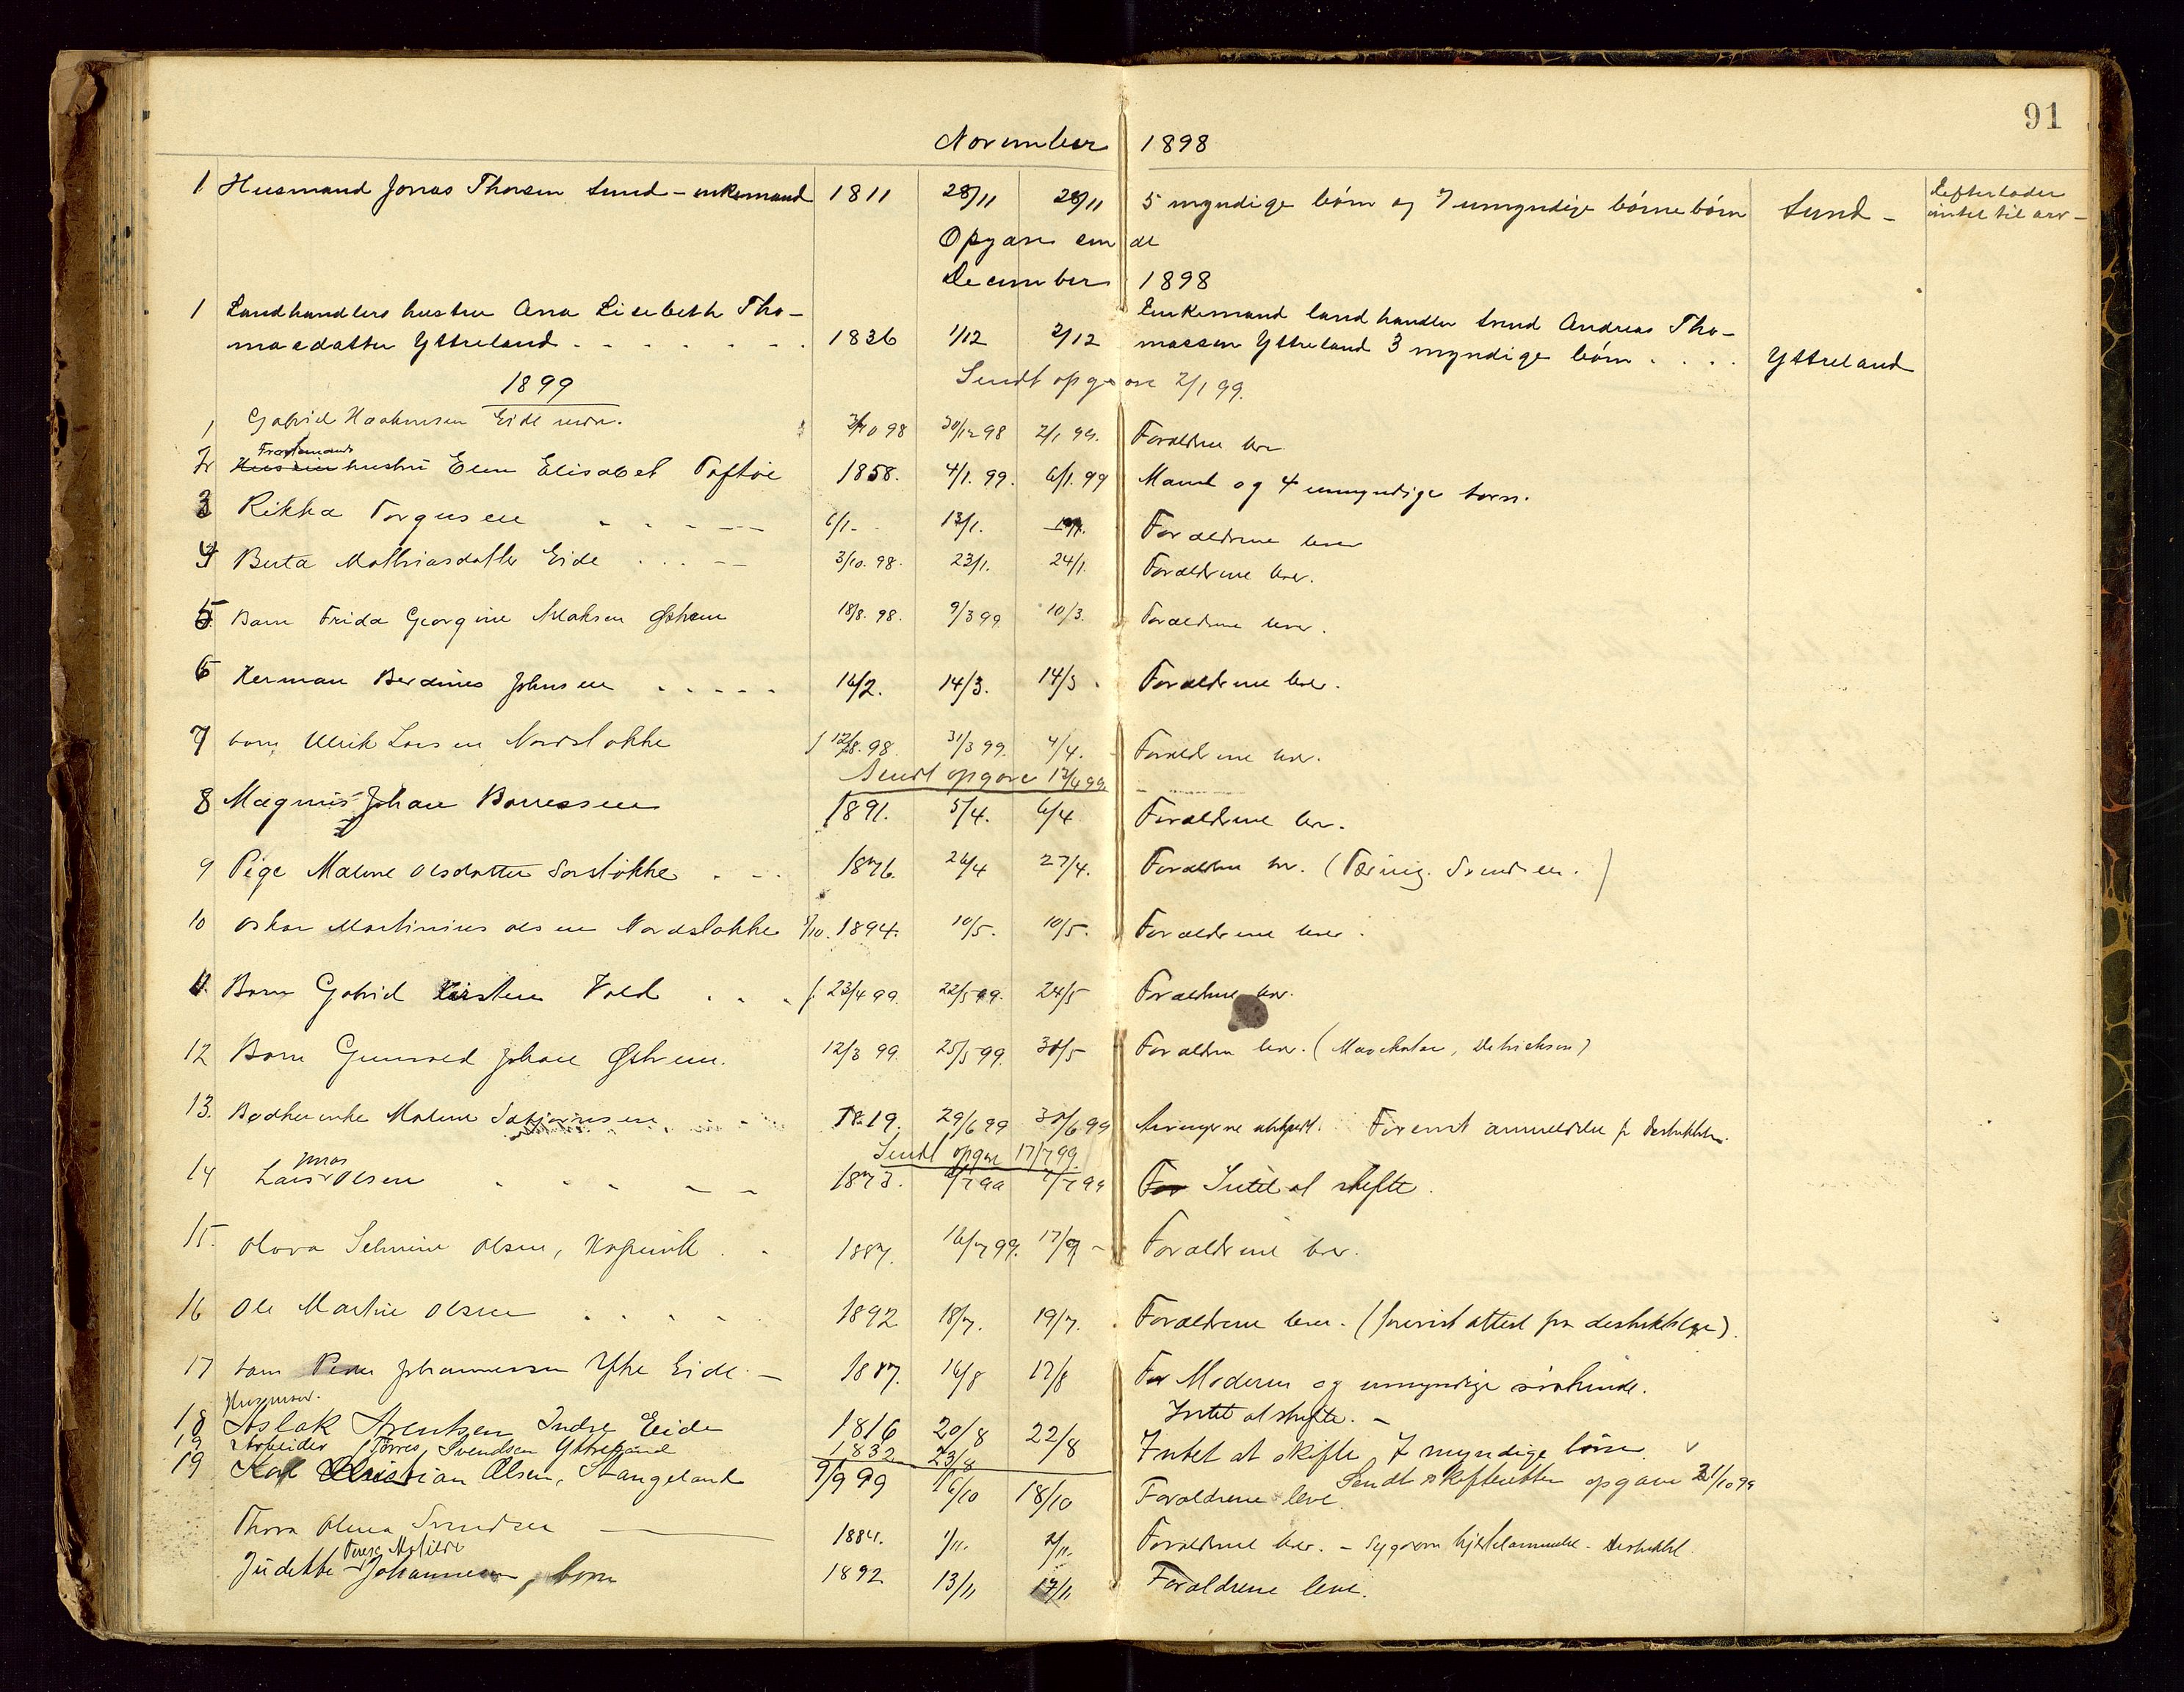 91
November 1898
1 Husmand Jonas Thorsen Sund - enkemand 1811 28/11 28/11 5 myndige börn og 7 umyndige börnebörn Sund - Efterlader intet til arv -
Opgave sendt
December 1898
1 Landhandlers hustru Ana Lisebeth Tho-
masdatter Yttreland . . . . . 1836 1/12 2/12 Enkemand landhandler Andreas Tho-
massen Yttreland 3 myndige börn . . . . Yttreland
1899
Sendt opgave 2/1 99.
1 Gabriel Haakonsen Eide 98 30/12 98 2/1 99. Forældrene lever
2 hustru Elen Elisabet Toftøe 1858. 4/1. 99. 6/1. 99 Mand og 4 umyndige børn.
3 Rikka Torgusen 6/1 - 13/1. Forældrene lever
4 Berta Mathiasdatter Eide . . . 3/10. 98. 23/1. 24/1. Forældrene lever.
5 Barn Frida Georgine Østrem 18/8. 98. 9/3 99 10/3. Forældrene lever.
6 Herman Berdines Johnsen . . . . . 16/2. 14/3. 14/3. Forældrene lever.
7 barn Ulrik Larsen Nordstokke 12/8. 98. 31/3 99. 4/4. Forældrene lever.
Sendt opgave 12/4 99.
8 Magnus Johan Bærresen 1891. 5/4. 6/4 Forældrene lever.
9 Pige Malene Olsdatter Sørstokke . . . 1876. 26/4 27/4. Forældrene lever. ( Svendsen. )
10 Oskar Martinius Olsen Nordstokke /10. 1894. 10/5. 10/5. Forældrene lever.
11. Barn Gabriel Kirsten Vold . . . 23/4 99. 22/5 99. 24/5 Forældrene lever.
12 Barn Gunvald Johan Østrem. 12/3 99. 25/5 99. 30/5 Forældrene lever. ( Didriksen)
13. Bødkerenke Malene 1819. 29/6 99 30/6 99 Arvingerne Forevist anmeldelse
Sendt opgave 17/7 99.
14 Lars Jonas Olsen . . . . 1873. /7 99 /7 99 For Intet at skifte.
15. Olava Selmine Olsen, Kopervik . . 1887. 16/7 99. 17/9 - Forældrene lever.
16 Ole Martin Olsen . . . . . 1892 18/7. 19/7. Forældrene lever. (forevist attest fra ).
17 barn Peder Johannessen Ytre Eide. - 1887. 16/8 17/8 For Moderen og umyndige søskende.
Husmand.
18 Aslak Arentsen Indre Eide 1816 20/8 22/8 Intet at skifte. -
19 Arbeider Tørres Svendsen Yttreland 1832 23/8 Intet at skifte 7 myndige börn.
Sendt skifteretten opgave 21/10 99
19 Karl Christian Olsen, Stangeland 9/9 99 16/10 18/10 Forældrene leve.
Thora Olena Svendsen 1884. 1/11. 2/11. Forældrene lever. -
Judekke Terese Matilde Johannesen, barn 1892 13/11 17/11 Forældrene leve.